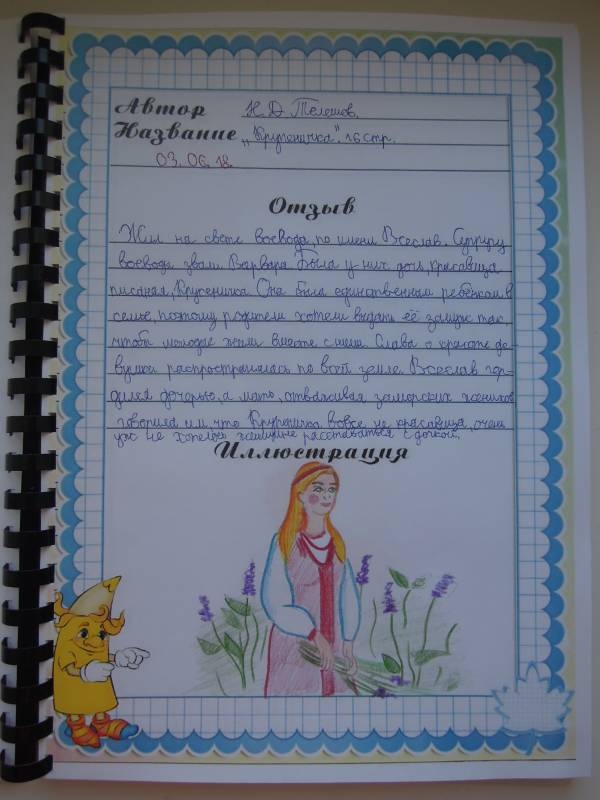 Автор Н Д Телешов.
Название "Крупеничка". 16 стр.
03. 06. 18.
Отзыв
Жил на свете воевода, по имени Всеслав. Супругу
воеводы звали Варвара Была у них дочь, красавица
писаная, Крупеничка Она была единственным ребёнком в
семье, поэтому родители хотели выдать её замуж так,
чтобы молодые жили вместе с ними Слава о красоте де-
вушки распространялась по всей земле. Всеслав гор-
дился дочерью, а мать, отваживая заморских женихов
говорила им, что Крупеничка вовсе не красавица, очень
уж не хотелось женщине расставаться с дочкой.
Иллюстрация